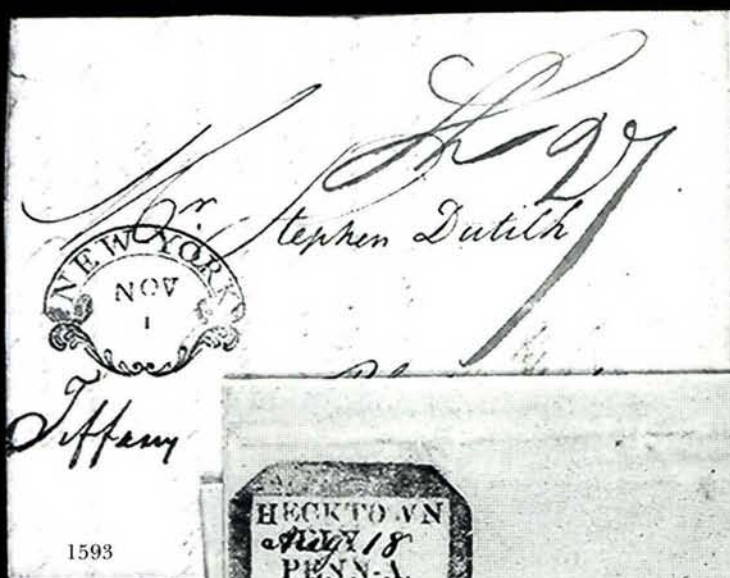 Sh 27
Mr. Stephen Dutilh
NEW YORK
NOV
1
Tiffany
HECKTOWN
Aug 18
PENN-A
1593